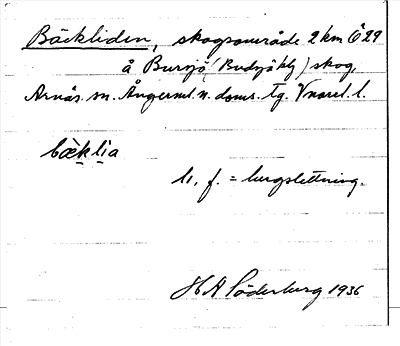 Bäckliden, skogsområde 2 km Ö 29
å Bursjö (Budsjöhlg) skog,
Arnäs sn. Ångerml. n. doms. tg. Vnorrl. l.
bæklia
li, f. = bergslettning.
H A Söderberg 1936